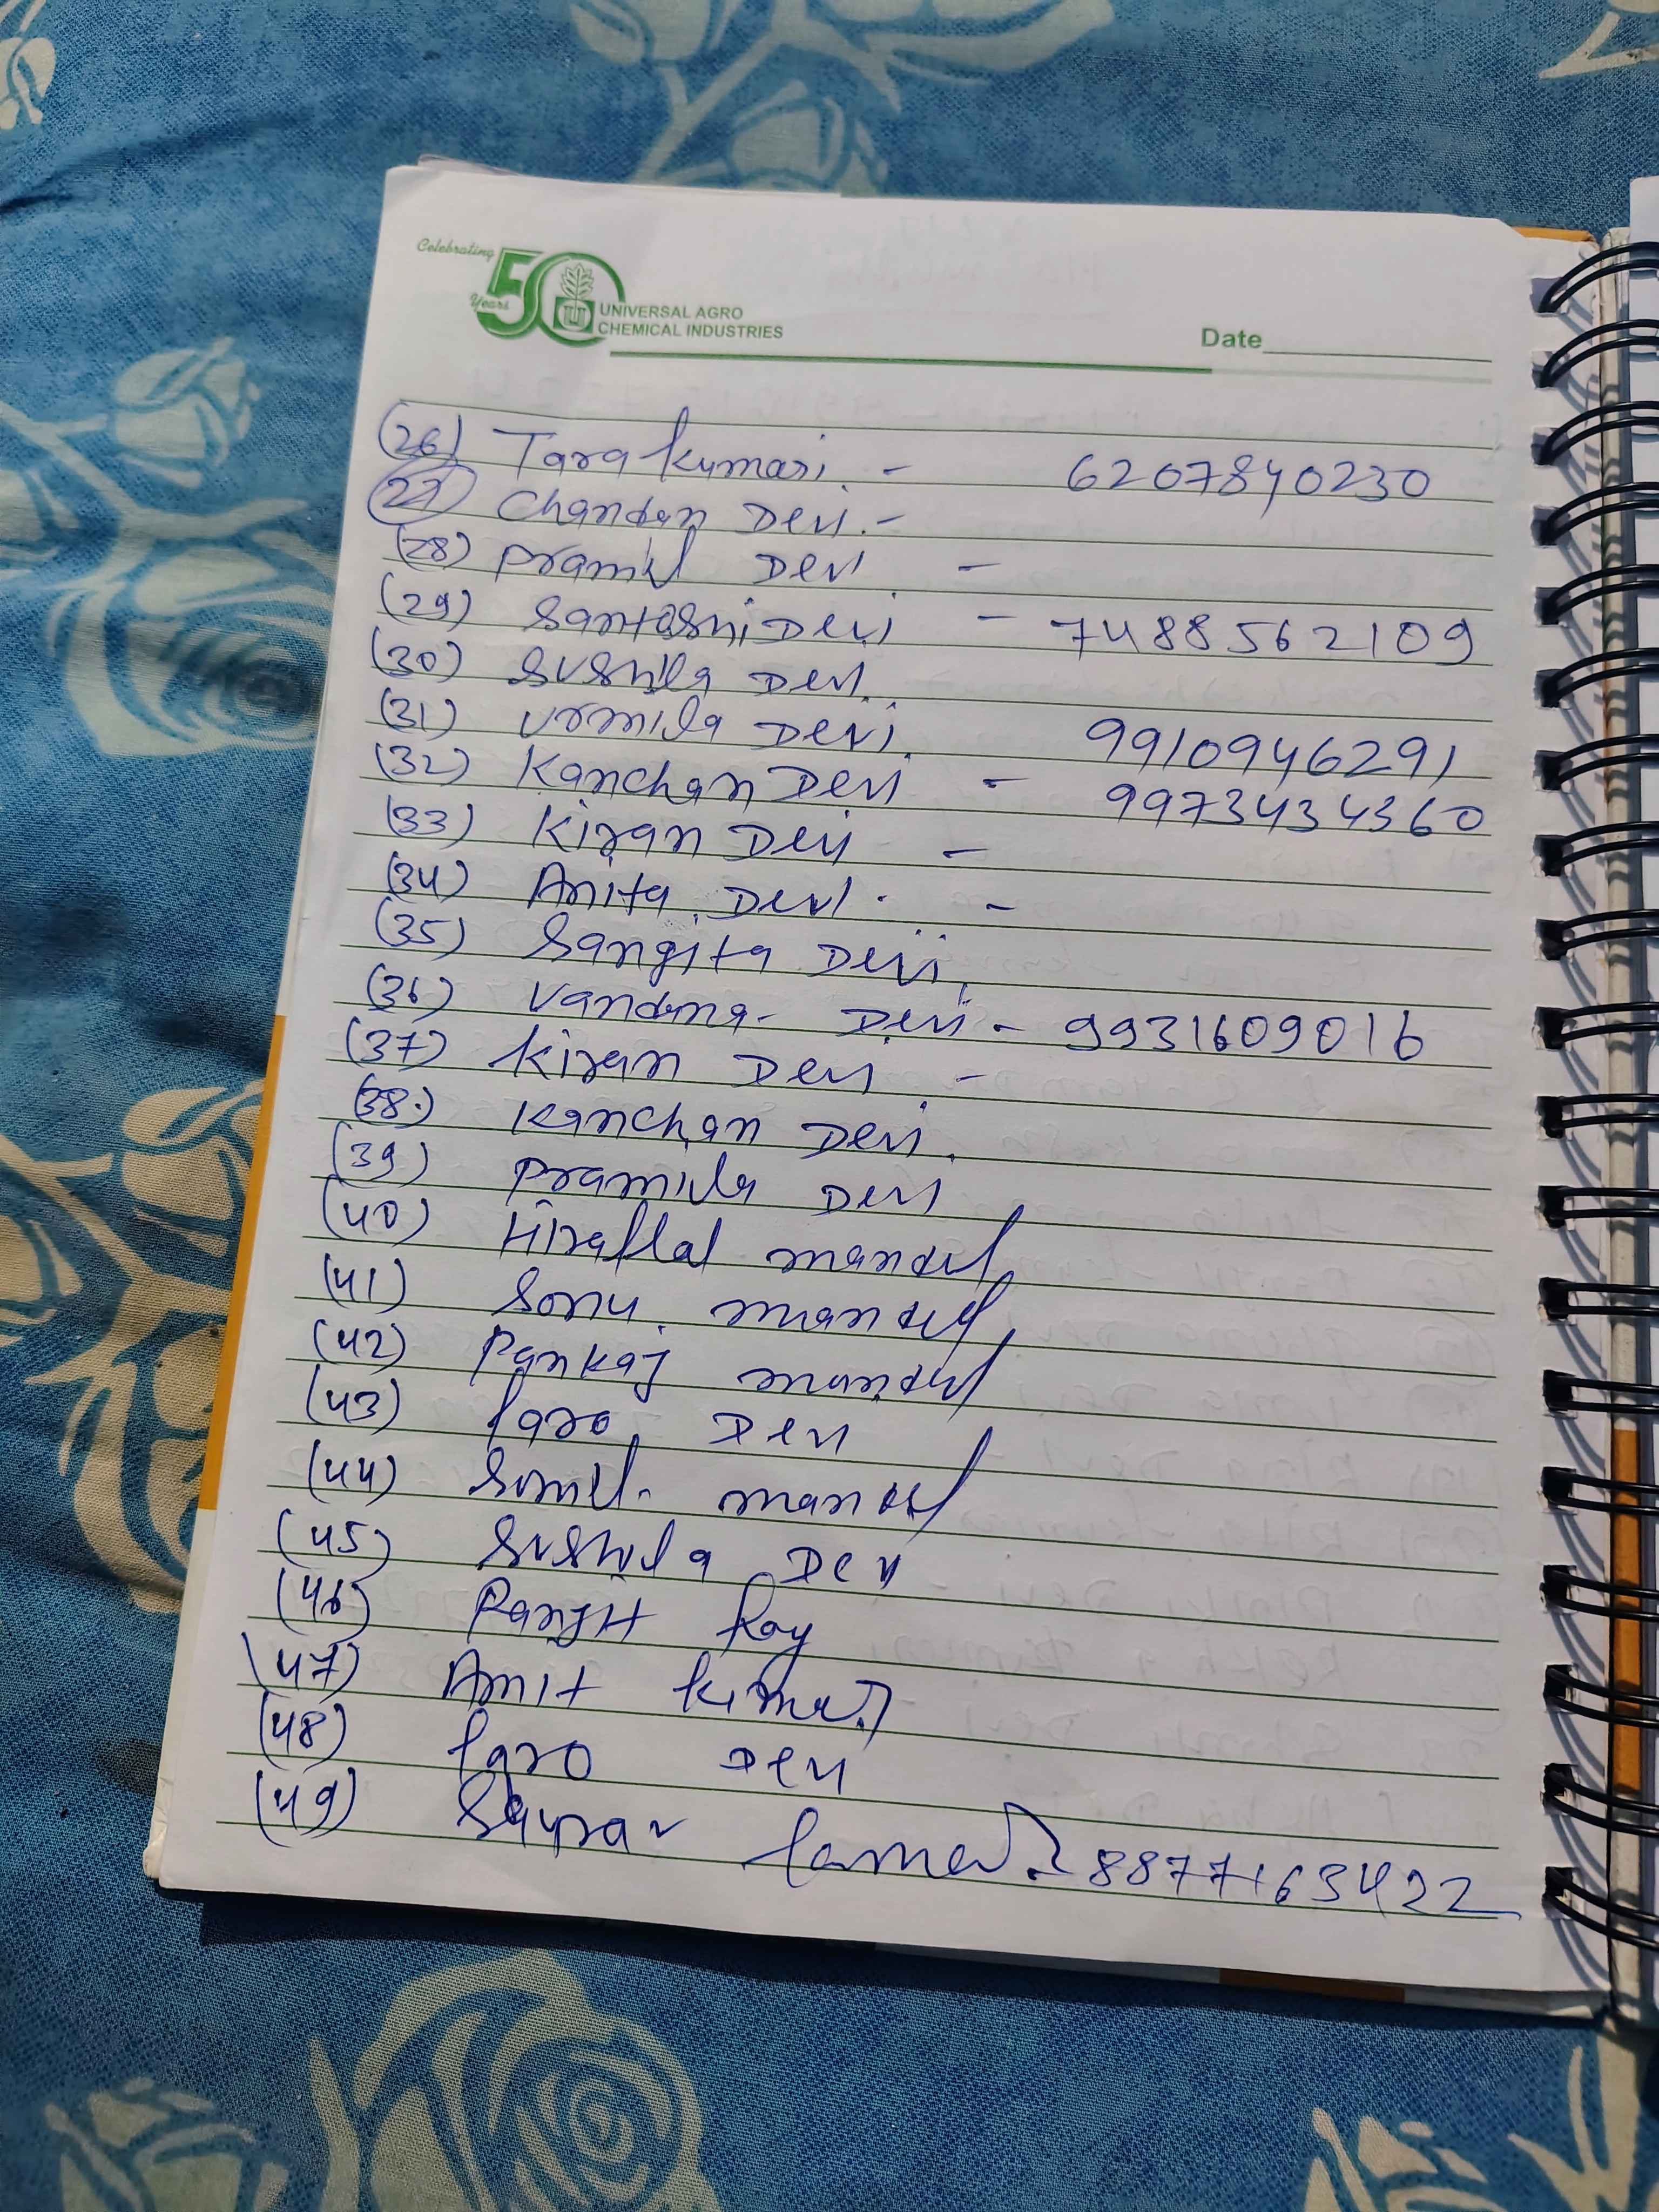 Celebrating
50
Years
UNIVERSAL AGRO
CHEMICAL INDUSTRIES
Date
(26) Tara Kumari. - 6207840230
(27) Chandan Devi. -
(28) Pramil Devi -
(29) Santoshi Devi - 7488562109
(30) Sushila Devi.
(31) Urmila Devi. 9910946291
(32) Kanchan Devi - 9973434360
(33) Kiran Devi -
(34) Anita Devi. -
(35) Sangita Devi.
(36) Vandna - Devi - 9931609016
(37) Kiran Devi -
(38.) Kanchan Devi.
(39) Pramila Devi
(40) Hirallal mandal
(41) Sonu mandal
(42) Pankaj mandal
(43) Paro Devi
(44) mandal
(45) Sushila Devi
(46) Ranjit Roy
(47) Amit Kumar
(48) Paro Devi
(49) 8877163422